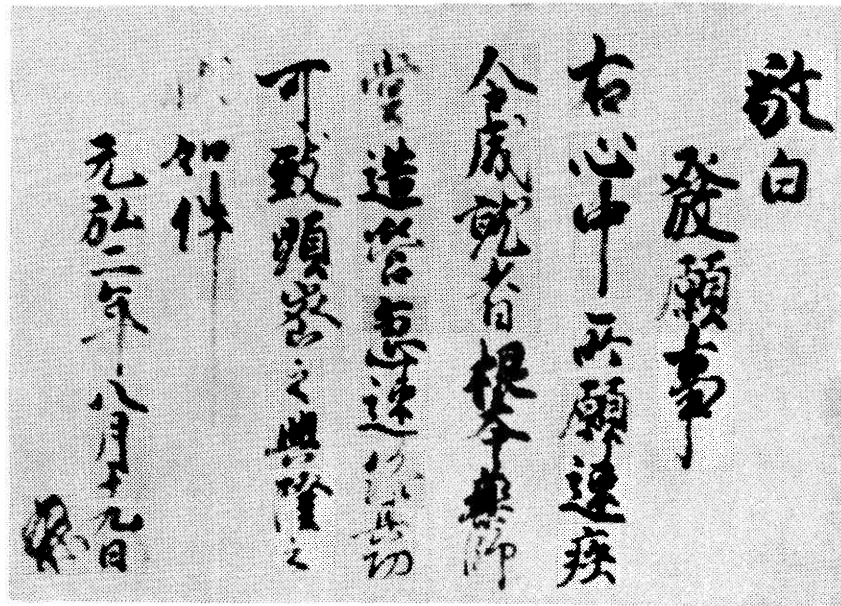 敬白
發願事
右心中所願速疾
令成就者根本藥師
堂造營急速終其功
可致顯密之興隆之
状如件
元弘二年八月十九日